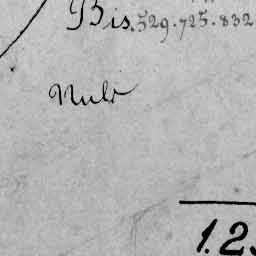 Bis.529.725.832
Nul
1.2